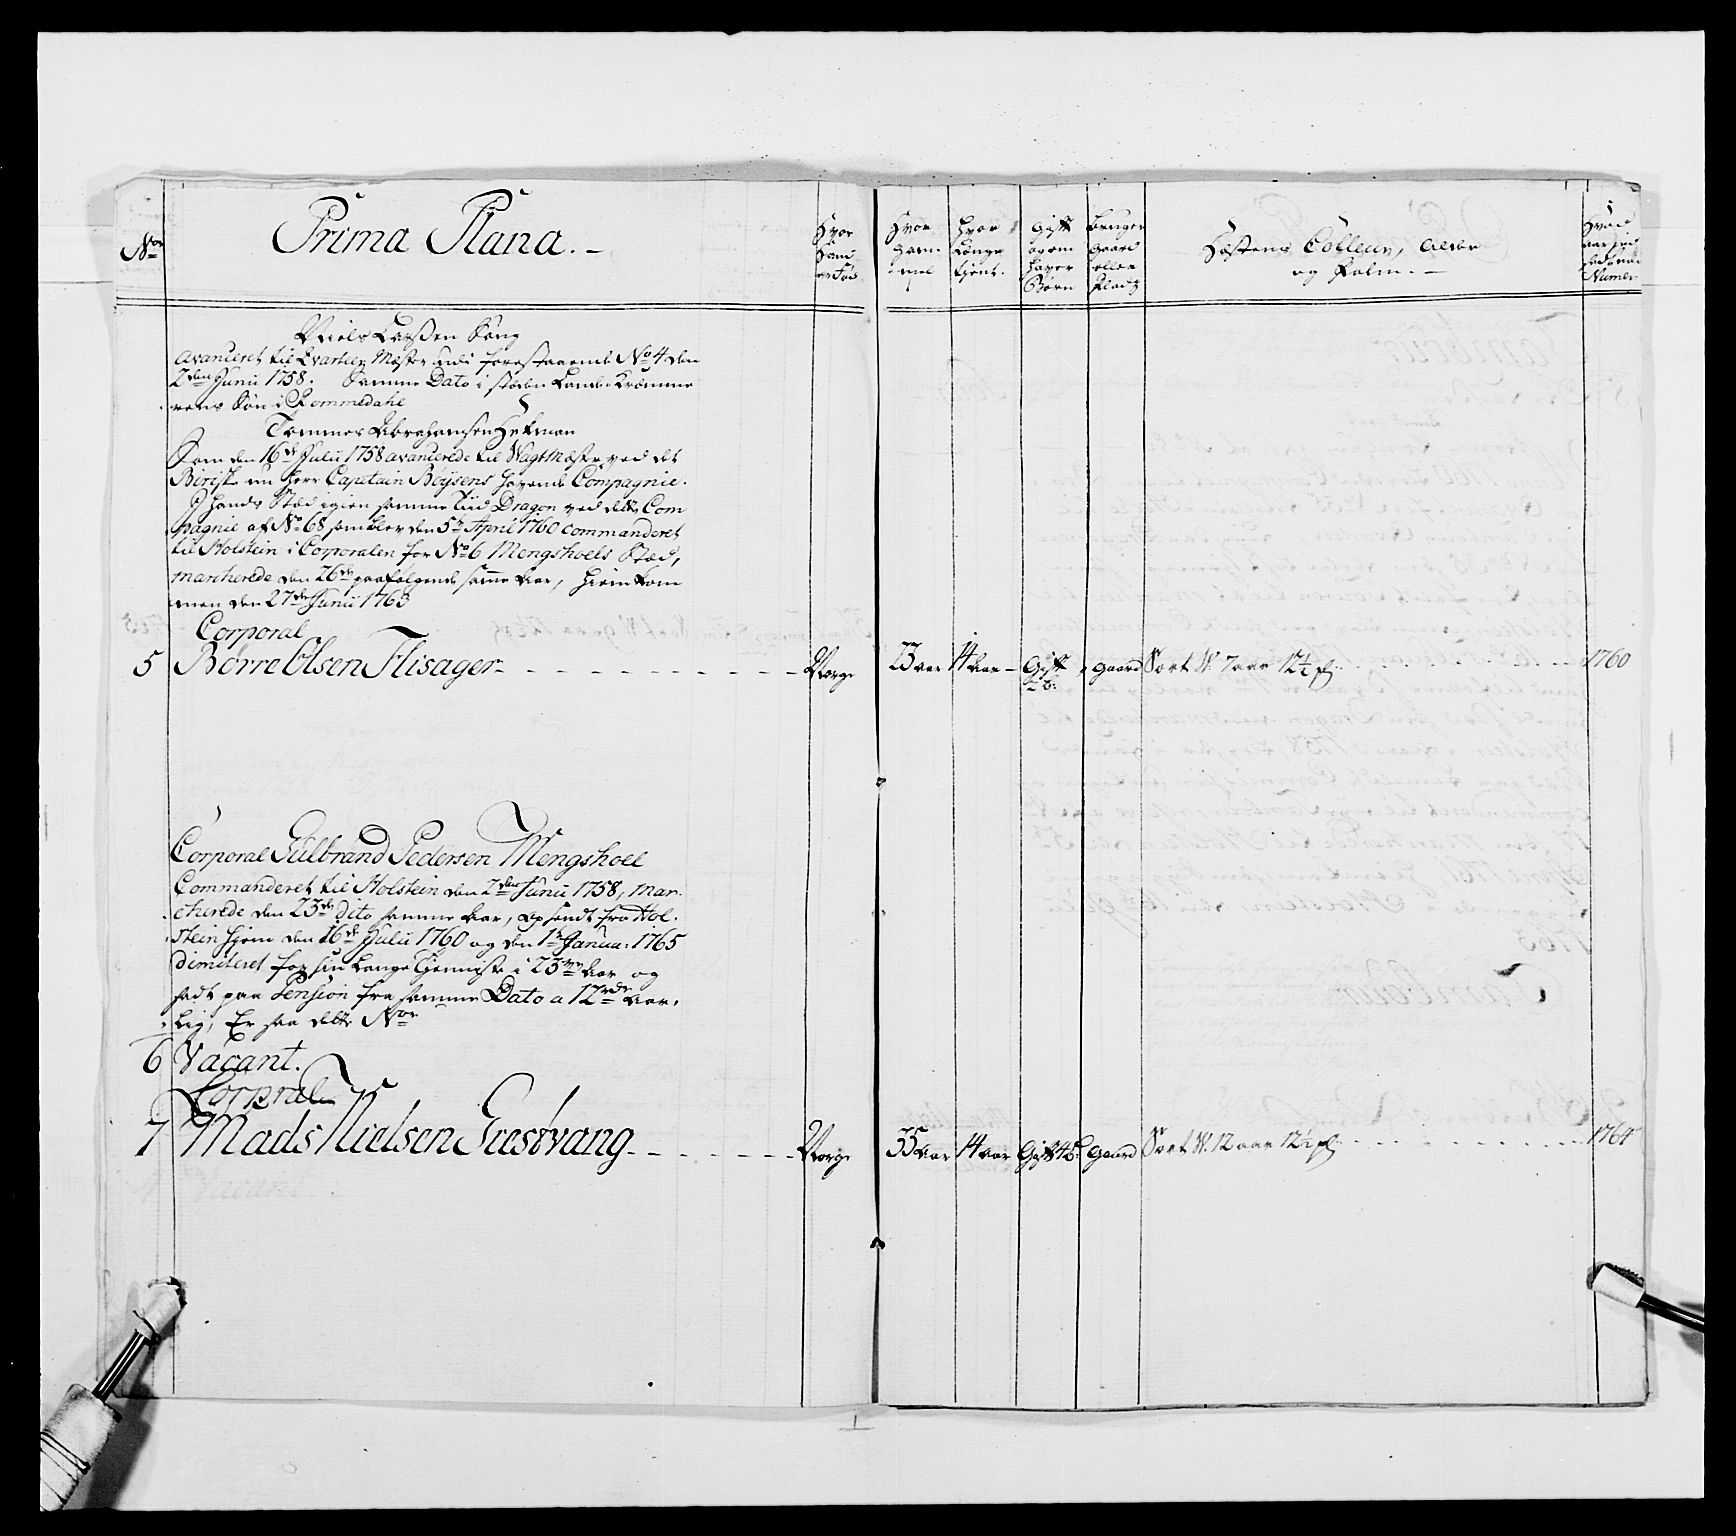 No
Prima Plana.
Hvor
han
er Fød
Hvor
gam-
mel
Hvor
Længe
tjent.
Gift
og om
haver
Børn
bruger
Gaard
eller
Pladz
Hæstens Colleur, Alder
og Palm.
Hvad
Numer
Niels Larsen Køng
avanceret til Qvarteer Mæster udi forestaaende No 4 den
2den Junii 1758. Samme Dato i stæden Lands Kræmme-
rens Søn i Rommedahl
Tommes Abrahamsen Hekman
Som den 16de Julii 1758 avancerede til Wagt Mæster ved det
Birisk nu Herr Capetain Böysens havende Compagnie.
I hands Stæd igien samme Tiid Dragon ved dette Com
pagnie af No 68 som blev den 5te April 1760 commanderet
til Holstein i Corporalen for No 6 Mengshoels Stæd,
marcherede den 26de paafølgende samme Aar, hiemkom
men den 27de Junii 1763
Corporal
5 Börre Olsen Flisager Norge 23 aar 14 Aar Gift gaard Sort W. 7 aar 12½ pl. 1760
2 b:
Corporal Gulbrand Pedersen Mengshoel
Commanderet til Holstein den 2den Junii 1758, mar-
cherede den 23de dito samme Aar, opsendt fra Hol-
stein hjem den 16de Julii 1760 og den 1te Januar: 1765
dimiteret for sin lange Tienniste i 23 Aar og
sadt paa Pension fra samme Dato a 12 rdr Aar-
lig, Er saa dette Nor
6 Vacant.
Corporal
7 Mads Nielsen Giestvang Norge 35 Aar 14 aar Gift 4 B: Gaard Sort W. 12 aar 12½ pl. 1764